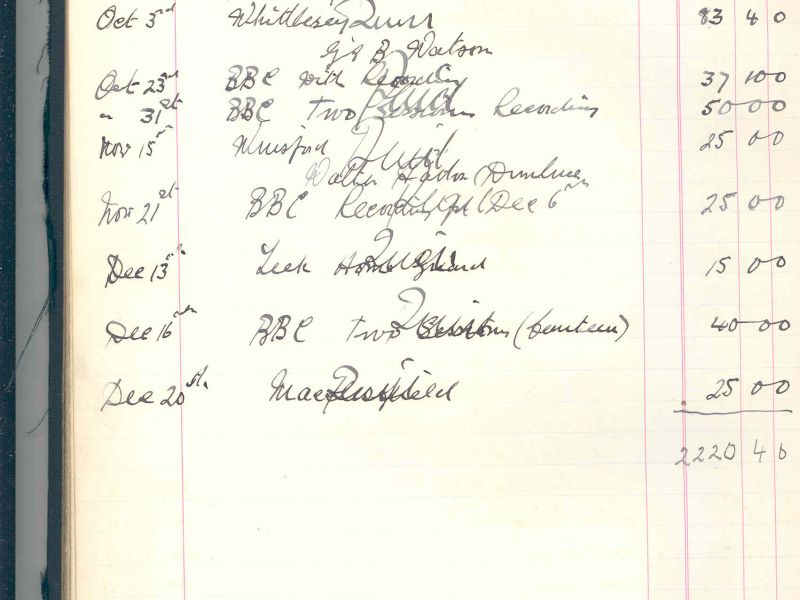 Oct 3rd Whittlesey 83 4 0
G & B Watson
Oct 23rd BBC with Recording 37 10 0
" 31st BBC Two Sessions Recording 50 0 0
Nov 15th Winsford 25 0 0
Nov 21st BBC Recording Dec 6th 25 0 0
Dec 13th Leek Home Guard 15 0 0
Dec 16th BBC Two Sessions (Canteen) 40 0 0
Dec 20th Macclesfield 25 0 0
2220 4 6